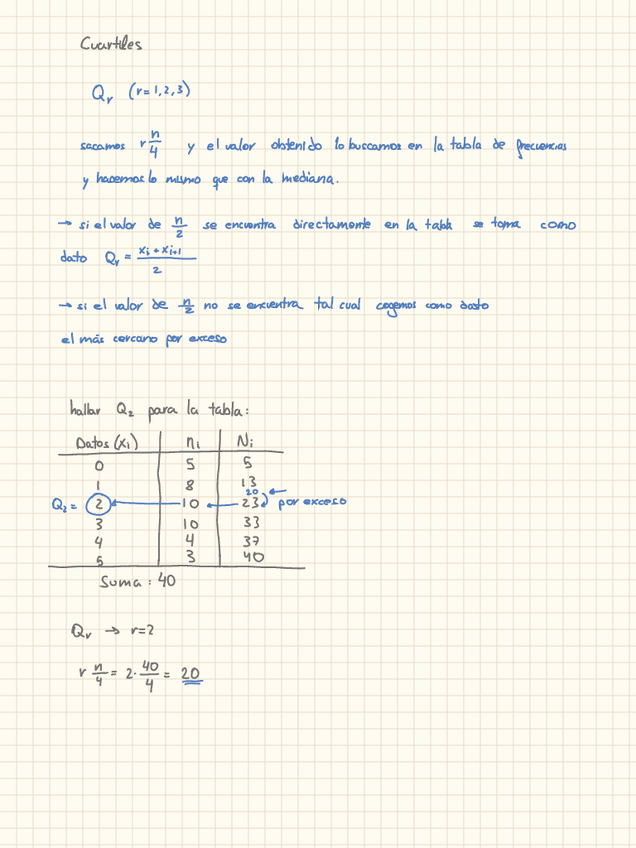 Cuartiles
Qr (r=1,2,3)
sacamos r n/4 y el valor obtenido lo buscamos en la tabla de frecuencias
y hacemos lo mismo que con la mediana.
→ si el valor de n/2 se encuentra directamente en la tabla se toma como
dato Qr = (xi + xi+1)/2
→ si el valor de n/2 no se encuentra tal cual cogemos como dasto
el más cercano por exceso
hallar Q2 para la tabla:
Datos (xi) | ni | Ni
0 | 5 | 5
1 | 8 | 13
20 ←
Q2 = 2 ← 10 ← 23 por exceso
3 | 10 | 33
4 | 4 | 37
5 | 3 | 40
Suma : 40
Qr → r=2
r n/4 = 2· 40/4 = 20